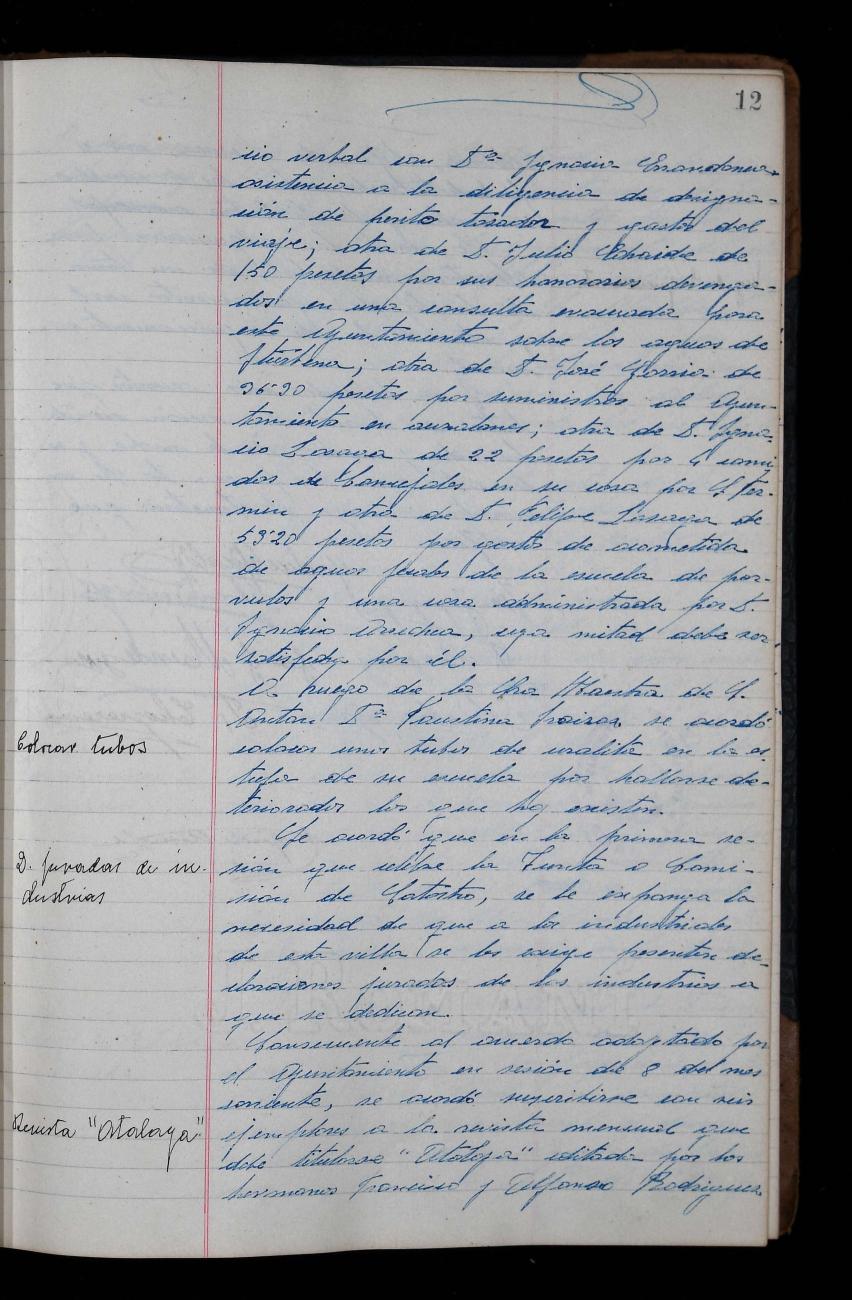 12
cio verbal con Dª Ignacia
asistencia a la diligencia de designa-
ción de perito tasador y gastos del
viaje; otra de D. Julio de
150 pesetas por sus honorarios devenga-
dos en una consulta evacuada para
este Ayuntamiento sobre las aguas de
Iturbena; otra de D. José de
pesetas por suministros al Ayun-
tamiento en ; otra de D. Igna-
cio Lasaga de 22 pesetas por 4 comi
das de Concejales en su casa por S. Fer-
mín y otra de D. Felipe Lasaga de
53'20 pesetas por gastos de acometida
de aguas fecales de la escuela de par-
vulos y una casa administrada por D.
Ignacio , cuya mitad debe ser
por él.
A ruego de la Sra Maestra de S.
Antón Dª Faustina se acordó
Colocar tubos
colocar unos tubos de uralita en la es
tufa de su escuela por hallarse de-
teriorados los que hoy existen.
Se acordó que en la primera se-
D. juradas de in-
dustrias
sión que celebre la Junta o Comi-
sión de Catastro, se le exponga la
necesidad de que a los industriales
de esta villa se les exige presenten de-
claraciones juradas de las industrias a
que se dedican.
Consecuente al acuerdo adoptado por
el Ayuntamiento en sesión de 8 del mes
corriente, se acordó suscribirse con seis
Revista "Atalaya"
ejemplares a la revista mensual que
debe titularse "Atalaya" editada por los
hermanos Francisco y Alfonso Rodriguez